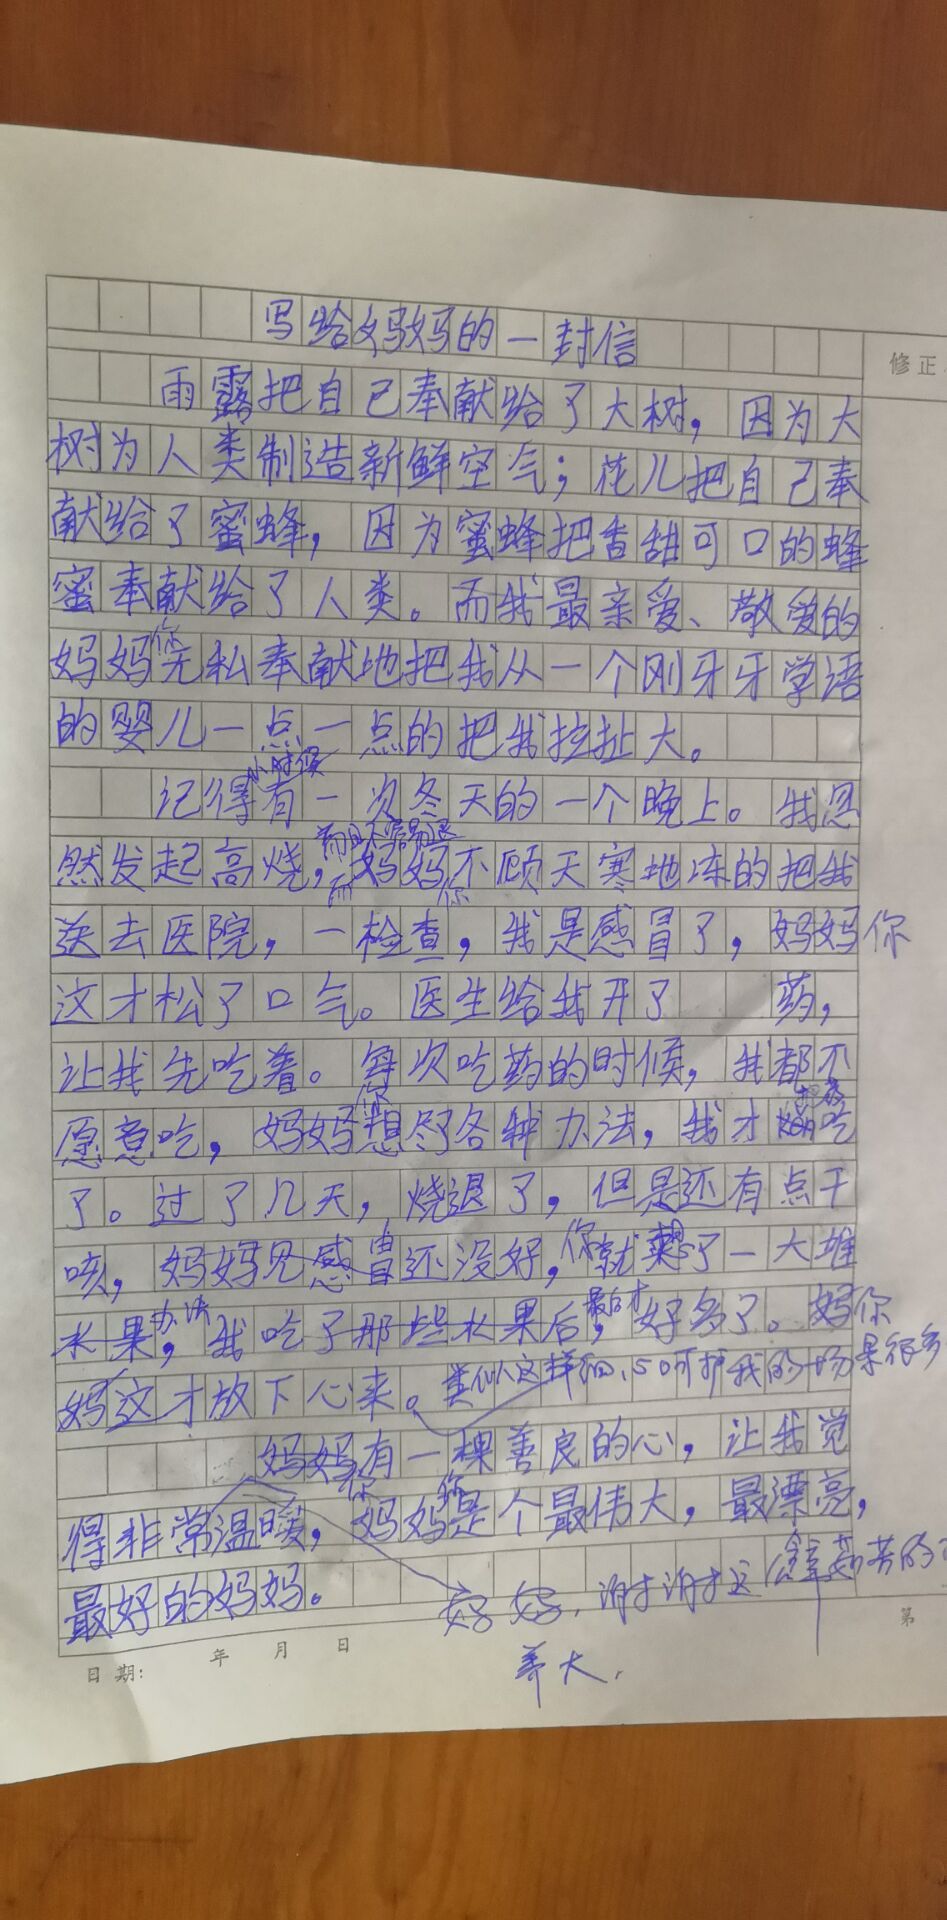 写给妈妈的一封信
修正
雨露把自己奉献给了大树，因为大
树为人类制造新鲜空气；花儿把自己奉
献给了蜜蜂，因为蜜蜂把香甜可口的蜂
蜜奉献给了人类。而我最亲爱、敬爱的
你
妈妈无私奉献地把我从一个刚牙牙学语
的婴儿一点一点的把我拉扯大。
小时候
记得有一次冬天的一个晚上。我忽
然发起高烧，妈妈不顾天寒地冻的把我
而 你
送去医院，一检查，我是感冒了，妈妈你
这才松了口气。医生给我开了 药，
让我先吃着。每次吃药的时候，我都不
你
愿意吃，妈妈想尽各种办法，我才 吃
了。过了几天，烧退了，但是还有点干
咳，妈妈见感冒还没好，你就 了一大堆
办法 最后才
水果，我吃了那些水果后，好多了。妈你
妈这才放下心来。类似这样 我的 很多
妈妈有一棵善良的心，让我觉
你 你
得非常温暖，妈妈是个最伟大，最漂亮，
最好的妈妈。
谢谢
养大，
日期： 年 月 日
第